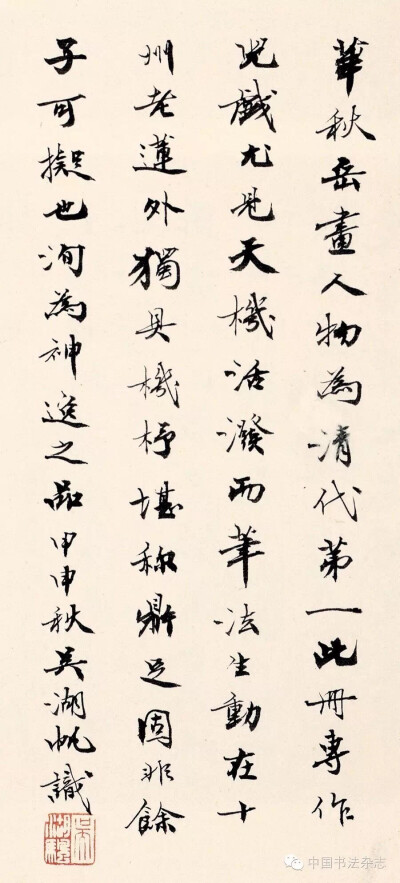 華秋岳畫人物為清代第一此冊專作
兒戲尤見天機活潑而筆法生動在十
州老蓮外獨具機杼堪称鼎足固非餘
子可擬也洵為神逸之品甲申秋吴湖帆識
吴湖颿
中国书法杂志